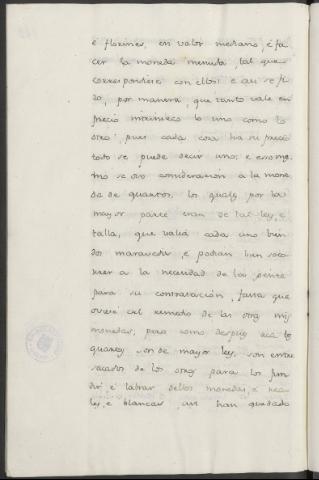 é florines, en valor mediano, é fa
cer la moneda menuda, tal que
correspondiese con ellos: é así se fi
zo, por manera, que tanto vale en
precio intrinseco lo uno como lo
otro; pues cada cosa ha su precio
todo se puede decir uno; é eso mes
mo se ovo consideracion á la mone
da de quartos, los quales por la
mayor parte eran de tal ley, é
talla, que valia cada uno bien
dos maravedis, é podian bien soco
rrer á la necesidad de las gentes
para su contratacion, fasta que
oviese el remedio de las otras mis
monedas; pero como despues acá los
quartos son de mayor ley, son entre
sacados de los otros para los fun
dir é labrar dellos monedas, é rea
les, é blancas, así han quedado